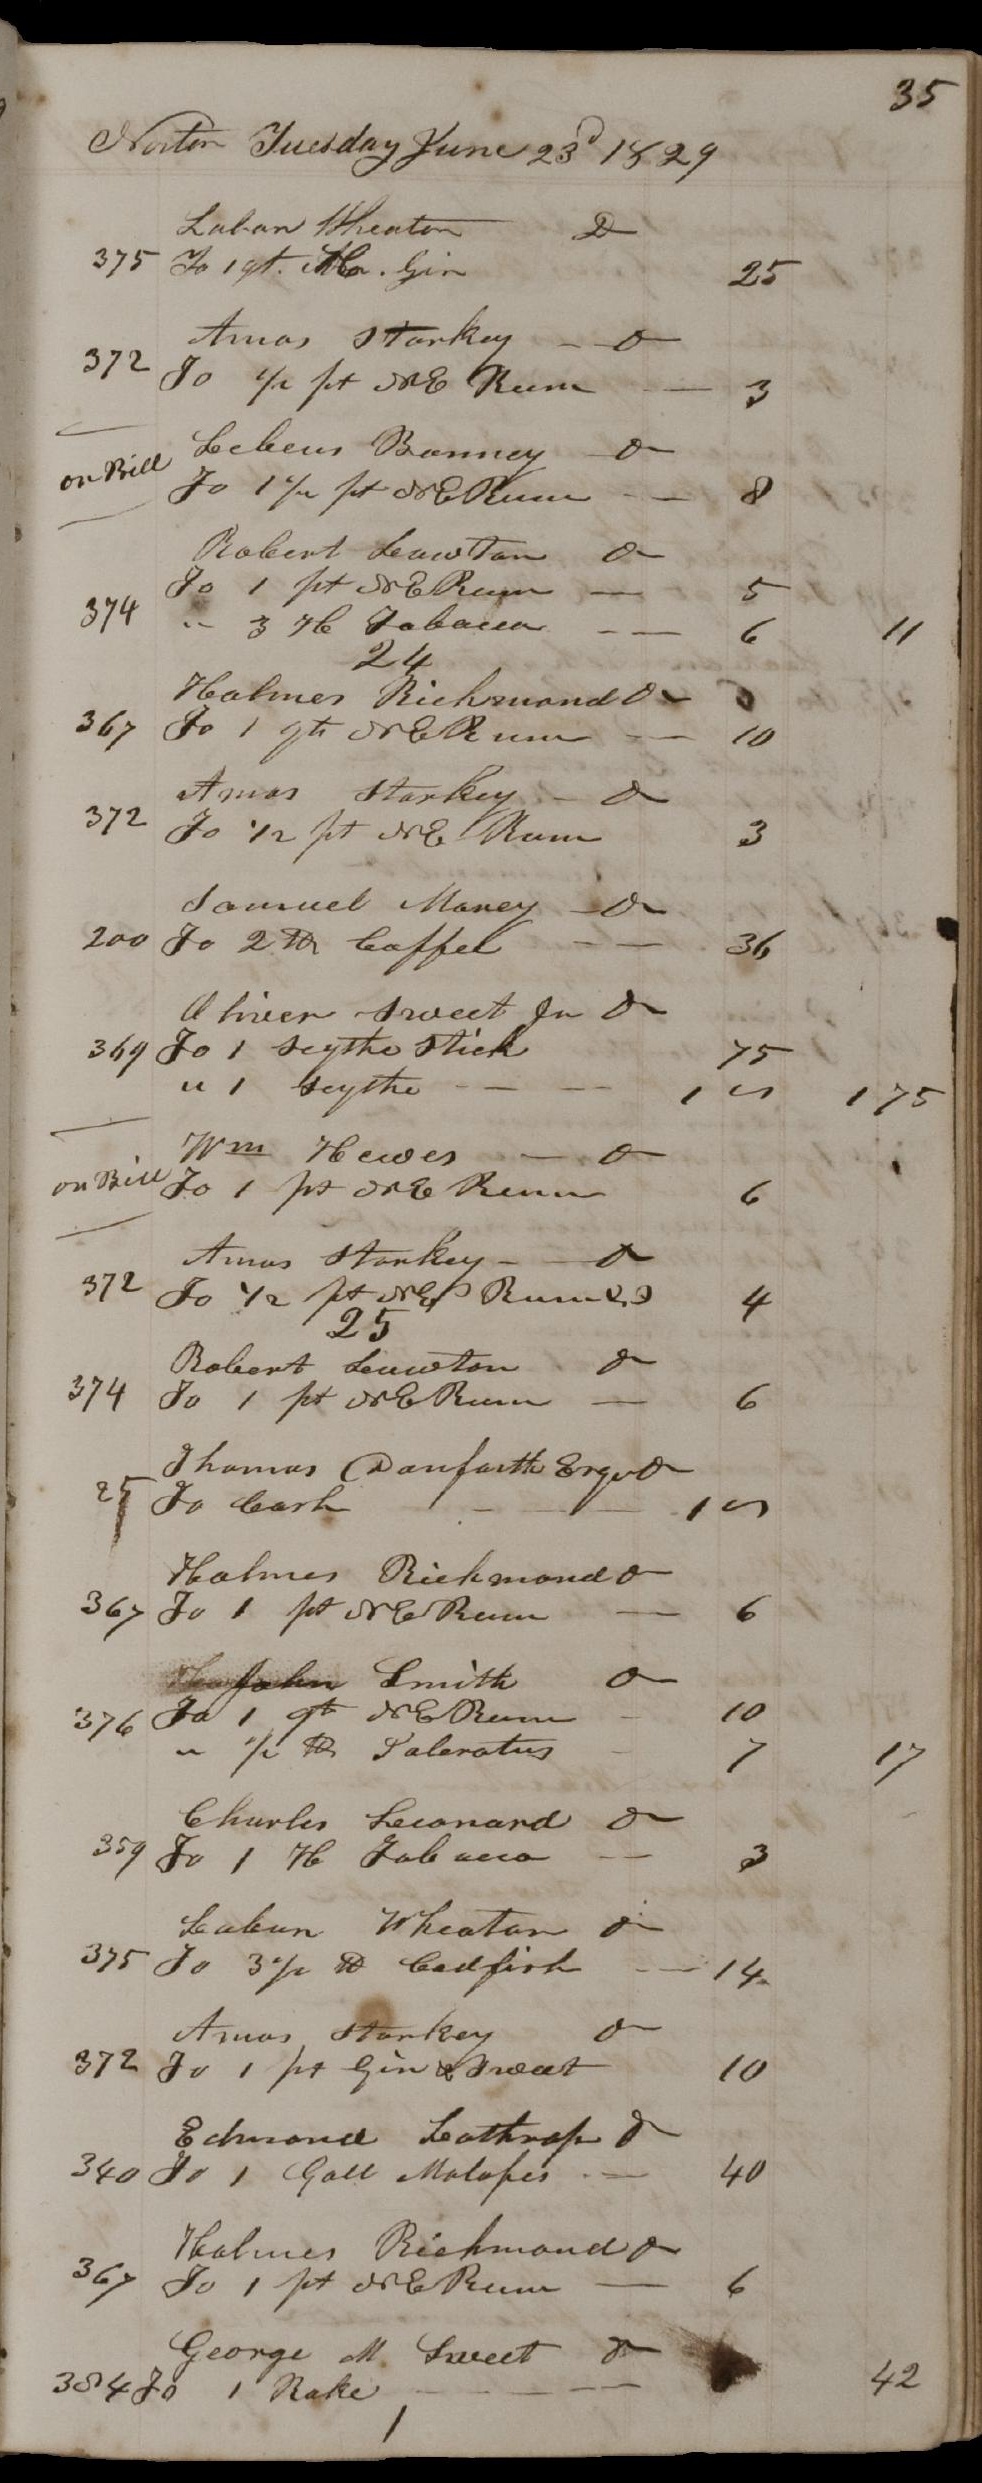 35
Norton Tuesday June 23d 1829
Laban Wheaton D
375 To 1 qt. Gin 25
Amos Starkey - D
372 To 1/2 pt NE Rum - 3
Lebeus Bonney - D
on Bill To 1 1/2 pt NE Rum - - 8
Robert Lawton D
To 1 pt NE Rum - 5
374 " 3 Tobacco - - 6 11
24
Holmes Richmond D
367 To 1 qt NE Rum - 10
Amos Starkey - D
372 To 1/2 pt NE Rum 3
Samuel Money - D
200 To 2 lb Coffee - - 36
Oliver Sweet Jn D
369 To 1 scythe stick 75
" 1 scythe - - - 1 00 1 75
Wm Hewes - D
on Bill To 1 pt NE Rum 6
Amos Starkey - D
372 To 1/2 pt NE Rum 4
25
Robert Lawton D
374 To 1 pt NE Rum - 6
Thomas Danforth Esqr D
25 To Cash - - - 1 00
Holmes Richmond D
367 To 1 pt NE Rum - 6
John Smith D
376 To 1 qt NE Rum - 10
" 1/2 lb Saleratus - 7 17
Charles Leonard D
359 To 1 Tobacco - 3
Laban Wheaton D
375 To 3 1/2 lb Codfish - 14
Amos Starkey D
372 To 1 pt Gin & Sweet 10
Edmond Lothrop D
340 To 1 Gall Molasses - 40
Holmes Richmond D
367 To 1 pt NE Rum - 6
George M Sweet D
384 To 1 Rake - - - - 42
1